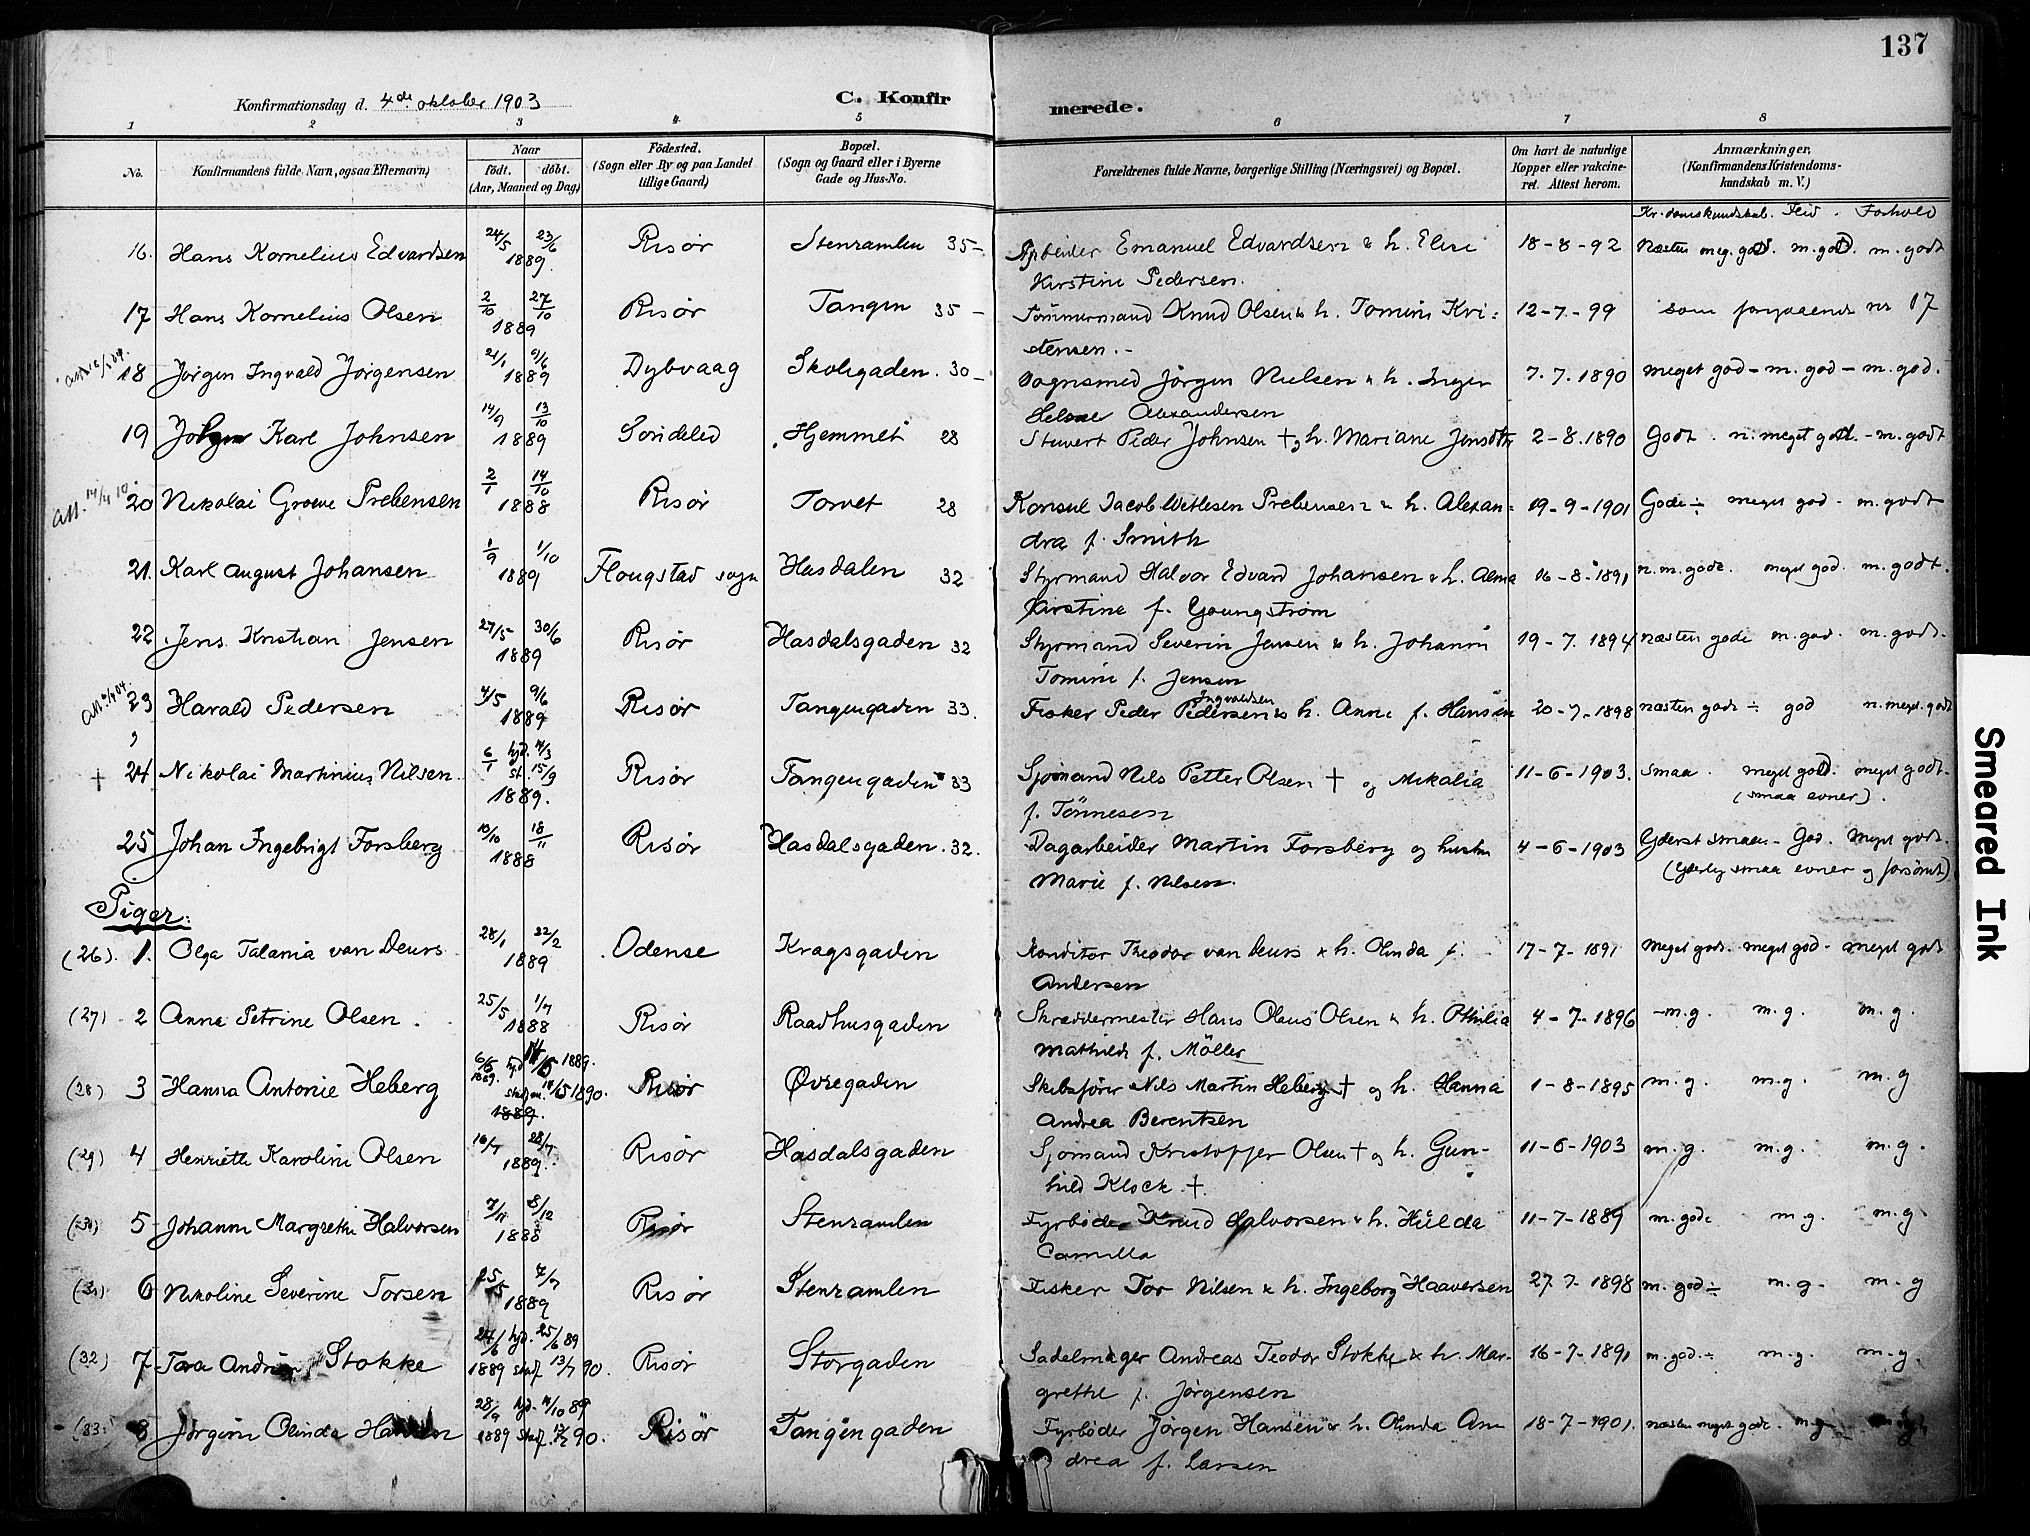 137
Konfirmationsdag d. 4de oktober 1903
C. Konfirmerede.
1 2 3 4 5 6 7 8
No.
Konfirmandens fulde Navn, ogsaa Efternavn)
Naar
födt. döbt.
(Aar, Maaned og Dag)
Födested.
(Sogn eller By og paa Landet
tillige Gaard)
Bopæl.
(Sogn og Gaard eller i Byerne
Gade og Hus-No.
Forældrenes fulde Navne, borgerlige Stilling (Næringsvei) og Bopæl.
Om havt de naturlige
Kopper eller vakcine-
ret. Attest herom.
Anmærkninger.
(Konfirmandens Kristendoms-
kundskab m. V.)
Kr.domskundskab. Flid. Forhold
16. Hans Kornelius Edvardsen 24/5 23/6 1889 Risør Stenramlen 35 – Arbeider Emanuel Edvardsen & h. Elise 18-8-92 Næsten meg. godt. m. god. m. godt
Kirstine Pedersen.
17 Hans Kornelius Olsen 2/10 27/10 1889 Risør Tangen 35 – Tömmermand Knud Olsen & h. Tomine Kri- 12-7-99 som forgaaende nr 17
stensen. -
18 Jörgen Ingvald Jörgensen 21/1 9/6 1889 Dybvaag Skolegaden. 30 – Vognsmed Jörgen Nielsen & h. Inger 7.7.1890 meget god – m. god – m. god.
Helene Alexandersen
19 Karl Johnsen 14/9 13/10 1889 Söndeled Hjemmet 28 Stuvert Peder Johnsen † og h. Mariane Jensdtr 2-8.1890 Godt. n. meget godt. – m. godt
att. 14/4 10. 20 Nikolai Groeve Prebensen 2/1 14/10 1888 Risør Torvet 28 Konsul Jacob Wetlesen Prebensen & h. Alexan- 19-9-1901 Gode ÷ meget god – m. godt
dra f. Smith
21. Karl August Johansen 1/9 1/10 1889 Flougstad sogn Hasdalen 32 Styrmand Halvor Edvard Johansen & h. Alma 16-8-1891 n. m. gode. meget god. m. godt.
Kirstine f. Youngström
22 Jens Kristian Jensen 27/5 30/6 1889 Risør Hasdalsgaden 32 Styrmand Severin Jensen & h. Johanne 19-7.1894 næsten gode m. god. m. godt.
Tomine f. Jensen
23 Harald Pedersen 4/5 9/6 1889 Risør Tangengaden 33. Fisker Peder Pedersen Ingvaldsen & h. Anne f. Hansen 20-7-1898 næsten gode ÷ god n. meget. godt
† 24 Nikolai Martinius Nilsen. 6/1 hjd. 4/3 st. 15/9 1889. Risør Tangengaden 33 Sjømand Nils Petter Olsen † og Mikalia 11-6-1903. smaa. meget god. meget godt.
f. Tönnesen (smaa evner).
25 Johan Ingebrigt Forsberg 10/10 18/11 1888 Risør Hasdalsgaden. 32. Dagarbeider Martin Forsberg og hustru 4-6-1903 Yderst smaa – God. Meget godt.
Marie f. Nilsen. (Yderlig smaa evner og forsömt)
Piger:
(26). 1. Olga Talania van Deurs 28/1 22/2 1889 Odense Kragsgaden Konditor Theodor van Deurs & h. Olinda f. 17-7-1891 Meget gode. meget god – meget godt
Andersen
(27) 2 Anna Petrine Olsen. 25/5 1/7 1888 Risør Raadhusgaden Skreddermester Hans Olaus Olsen & h. Othilia 4-7-1896 – m.g. m.g. m.g.
Mathilde f. Möller
(28) 3 Hanna Antonie Heberg 1889. 1890. 1889. Risør Øvregaden Skibsfører Nils Martin Heberg † og h. Hanna 1-8-1895 m.g. m.g. m.g
Andrea Berentsen
(29) 4 Henriette Karoline Olsen 16/7 28/7 1889. Risør Hasdalsgaden Sjømand Kristoffer Olsen † og h. Gun- 11-6-1903 m.g. m.g. m.g.
hild Klock †.
(30) 5 Johanne Margrethe Halvorsen 8/12 1888 Risør Stenramlen Fyrbøder Knud Halvorsen & h. Hulda 11-7-1889 m. gode m.g. m.g.
Camilla
(31) 6 Nikoline Severine Torsen 7/7 1889 Risør Stenramlen Fisker Tor Nilsen & h. Ingeborg Haaversen 27.7.1898 m. god ÷ m.g. m.g
(32) 7 Tora Stokke 24/6 hjd. 25/6 89 1889 stadf 13/7 90. Risør Storgaden Sadelmager Andreas Teodor Stokke & h. Mar- 16-7-1891 m. god. ÷ m.g. m.g.
grethe f. Jörgensen
(33) 8 Jörgine Olinda 28/9 hjd. 89 1889 stadf. 90. Risör Tangengaden Fyrbøder Jörgen Hansen & h. Olinda An 18-7-1901. næsten meget gode. m.g.
drea f. Larsen
Smeared Ink